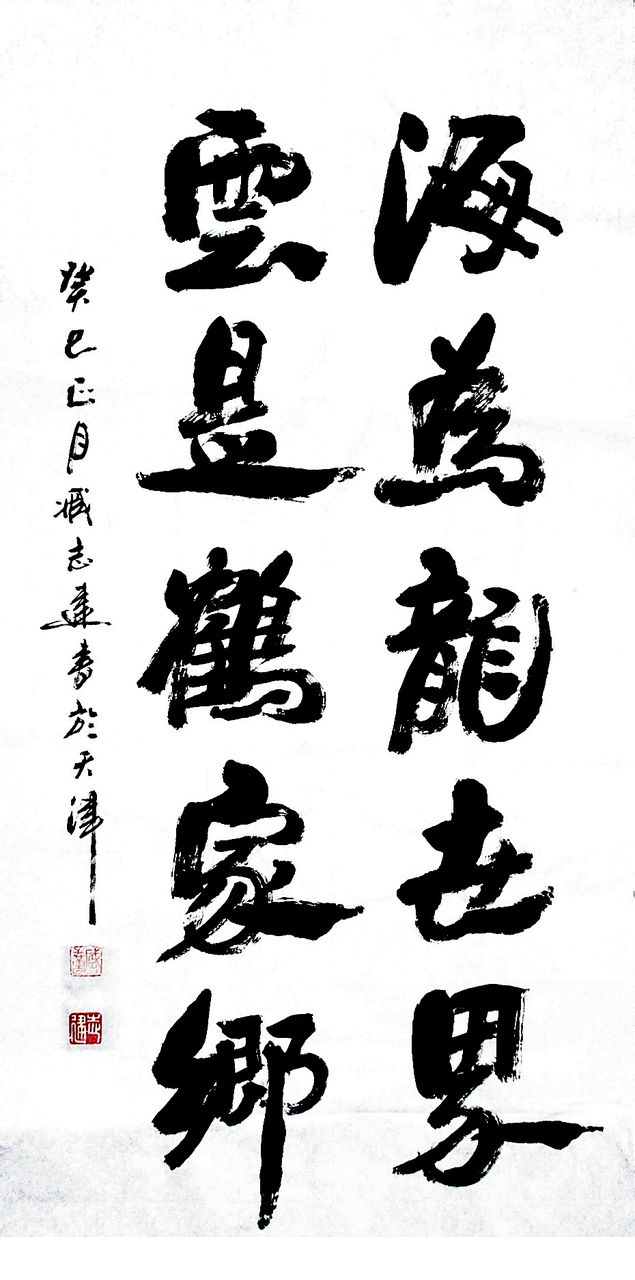 海為龍世界
雲是鶴家鄉
癸巳正月臧志建書於天津